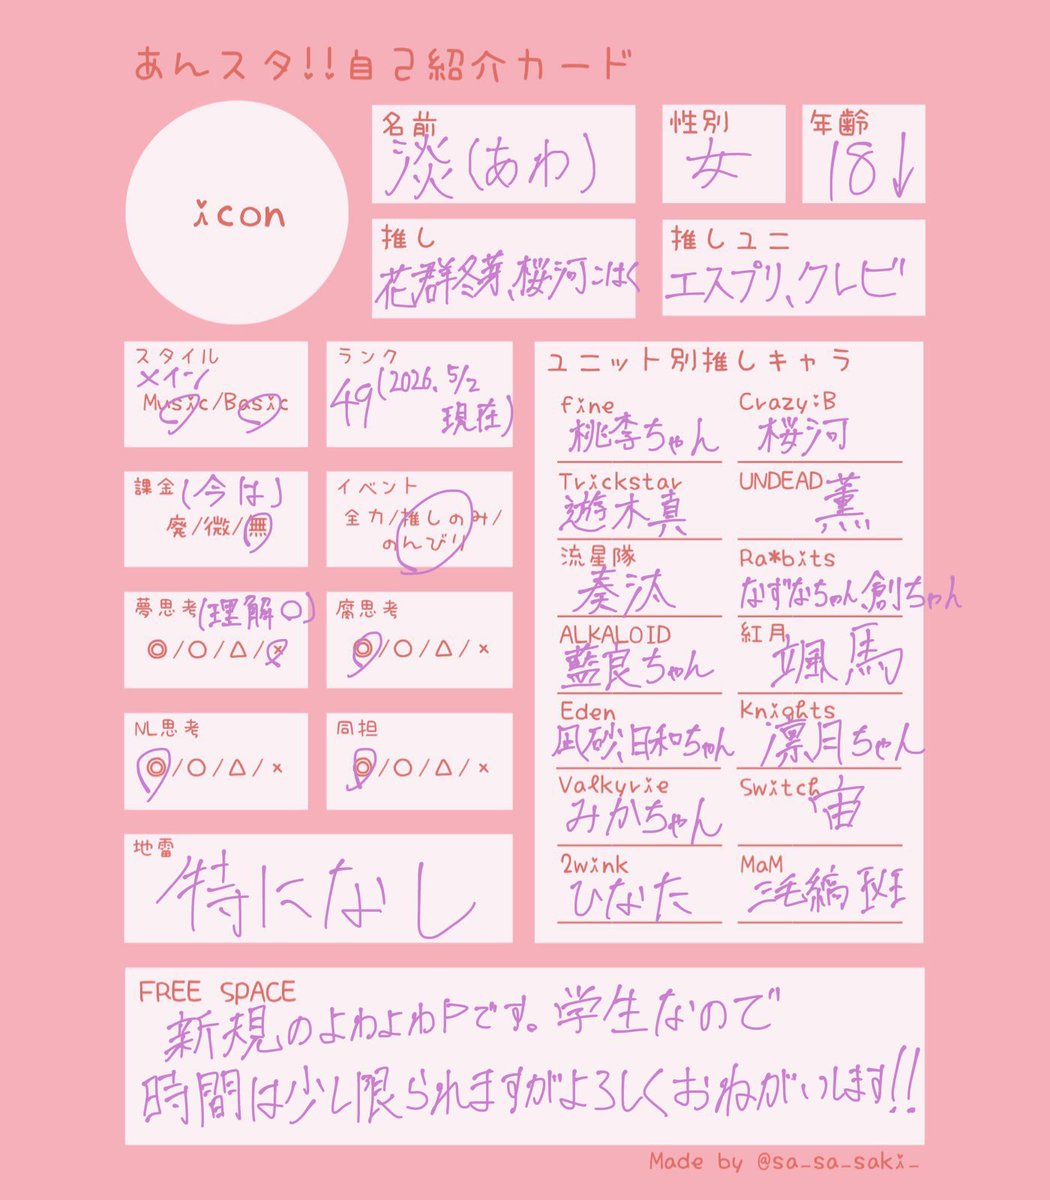 あんスタ!!自己紹介カード
icon
名前
淡(あわ)
性別
女
年齢
18↓
推し
花群冬芽、桜河こはく
推しユニ
エスプリ、クレビ
スタイル
メイン
Music/Basic
ランク
49(2026、5/2
現在)
課金(今は)
廃/微/無
イベント
全力/推しのみ/
のんびり
夢思考(理解○)
◎/○/△/×
腐思考
◎/○/△/×
NL思考
◎/○/△/×
同担
◎/○/△/×
地雷
特になし
ユニット別推しキャラ
fine
桃李ちゃん
Crazy:B
桜河
Trickstar
遊木真
UNDEAD
薫
流星隊
奏汰
Ra*bits
なずなちゃん、創ちゃん
ALKALOID
藍良ちゃん
紅月
颯馬
Eden
凪砂、日和ちゃん
Knights
凛月ちゃん
Valkyrie
みかちゃん
Switch
宙
2wink
ひなた
MaM
三毛縞斑
FREE SPACE
新規のよわよわPです。学生なので
時間は少し限られますがよろしくおねがいします!!
Made by @sa_sa_saki_